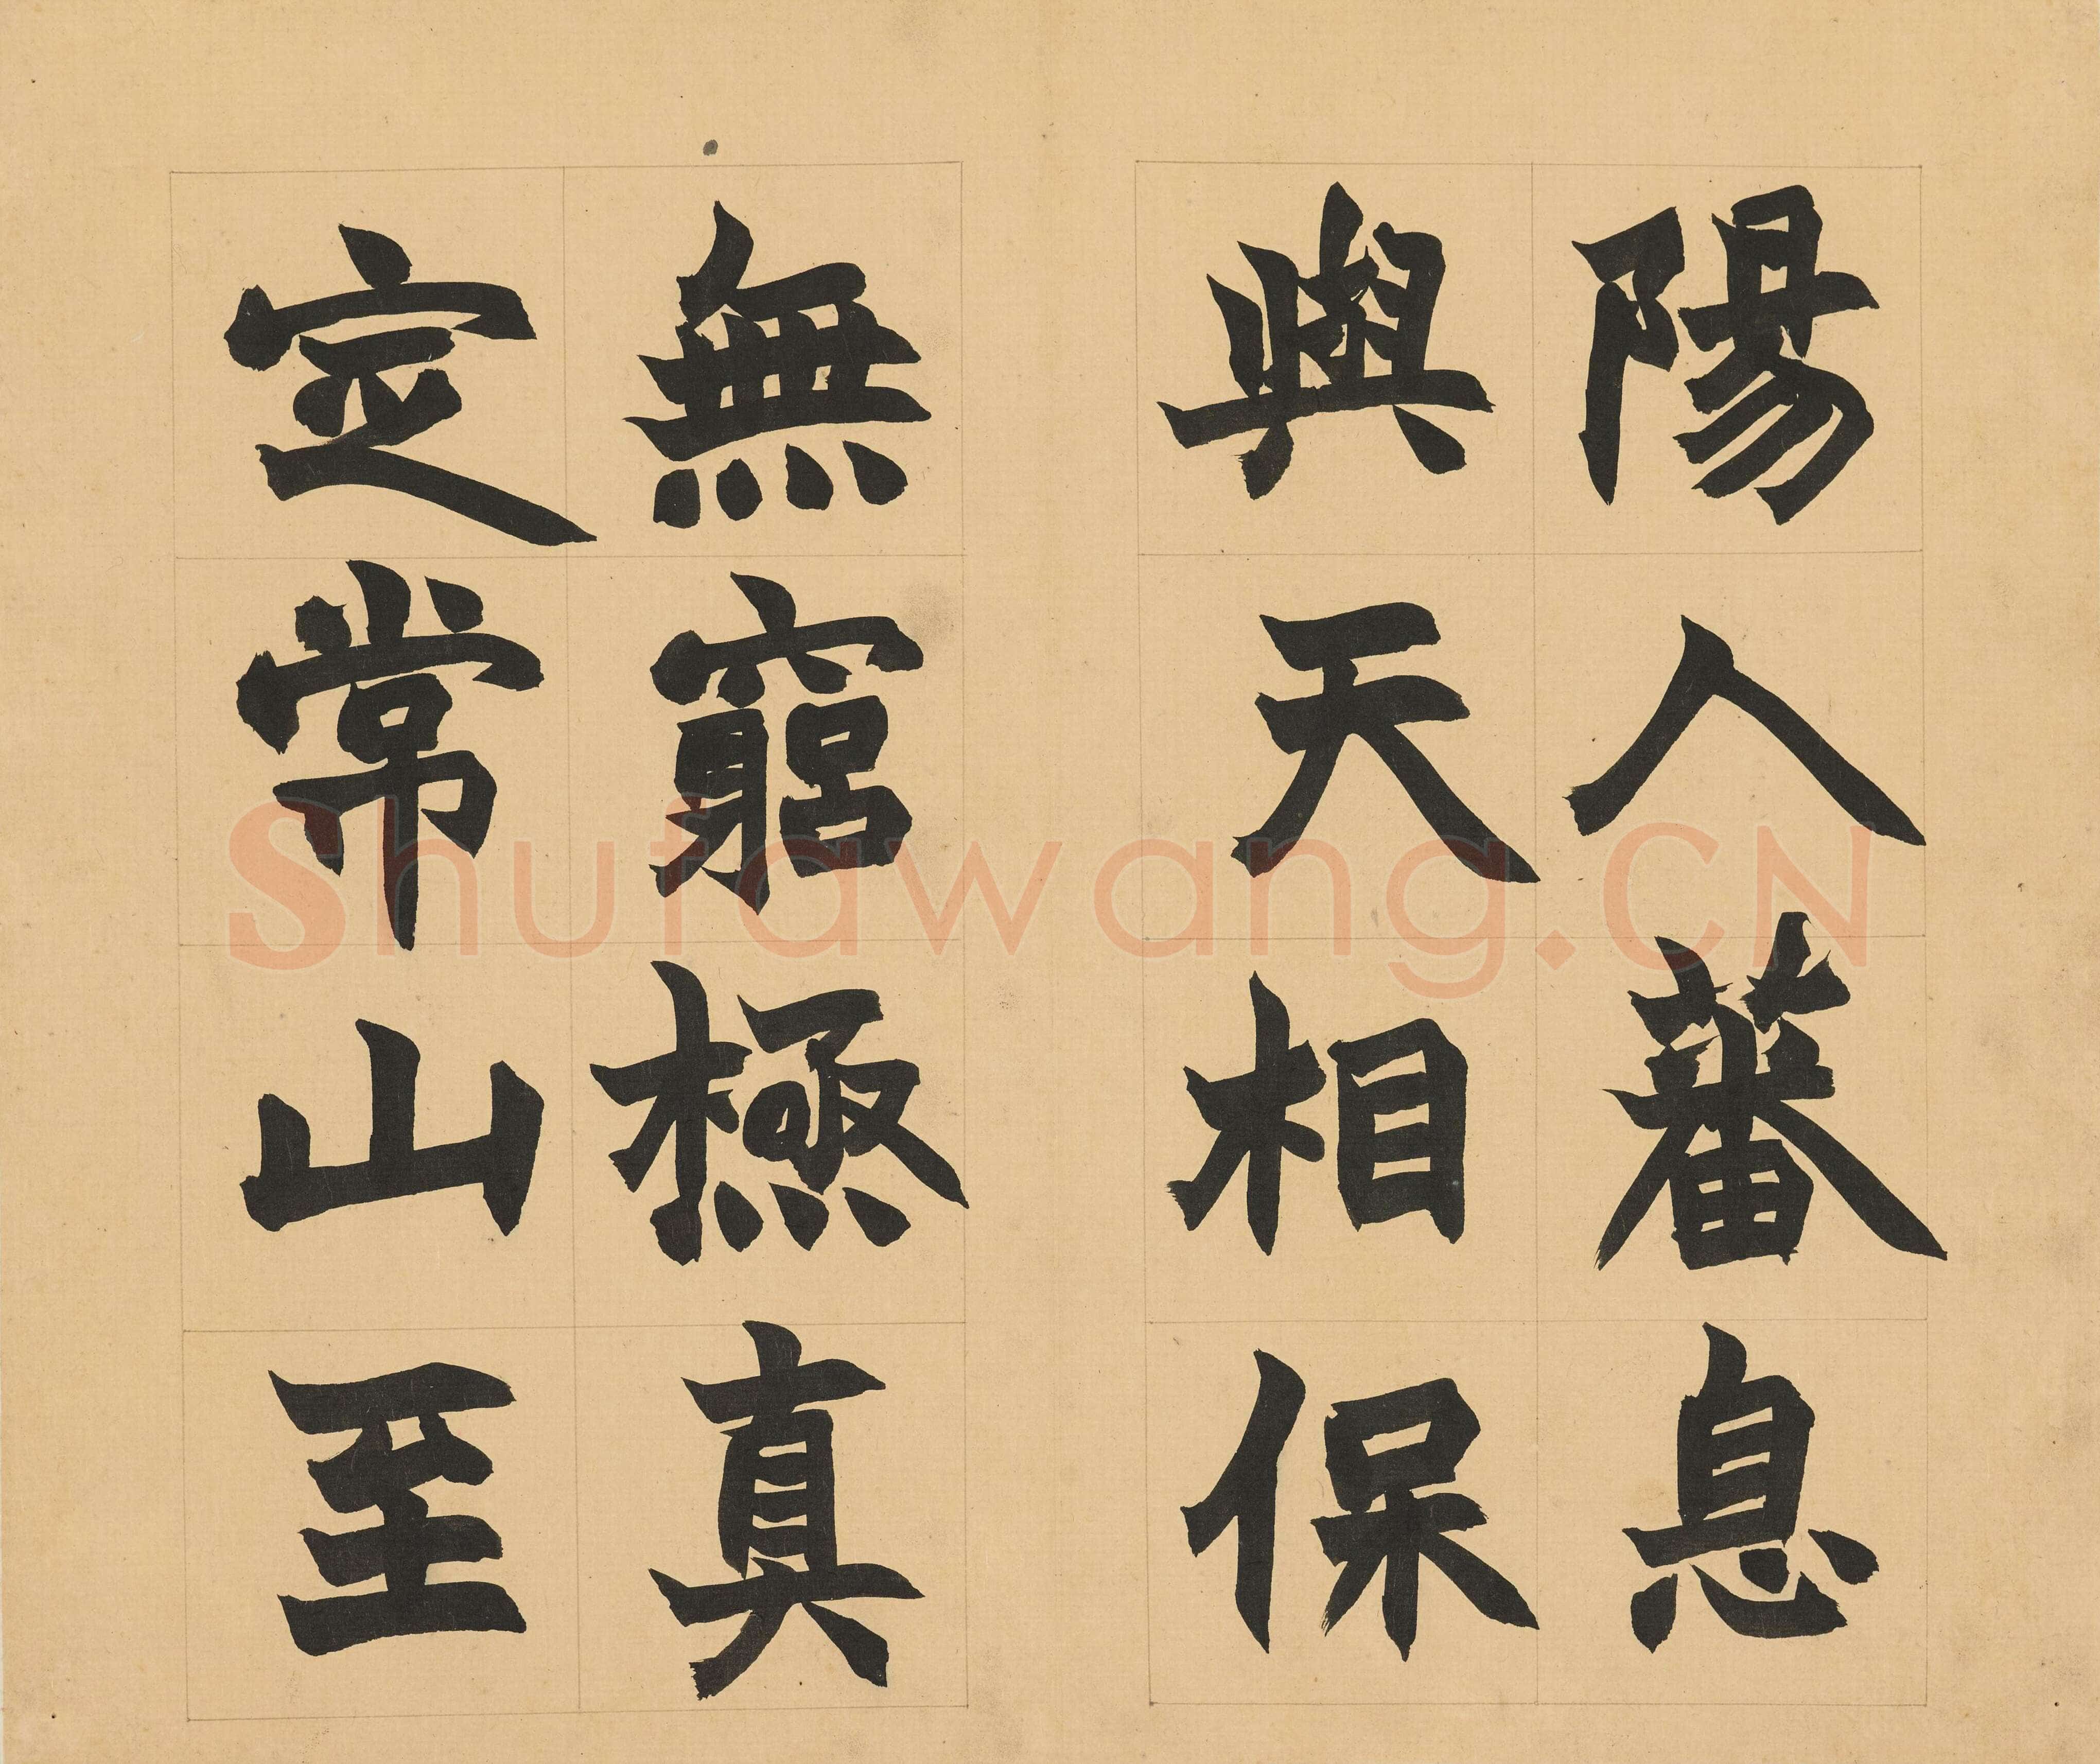 陽人蕃息
與天相保
無窮極真
定常山至
Shufawang.CN